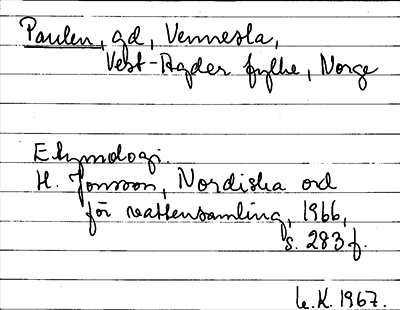 Paulen, gd, Vennesla,
Vest-Agder fylke, Norge
Etymologi.
H. Jonsson, Nordiska ord
för vattensamling, 1966,
s. 283 f.
L.K. 1967.